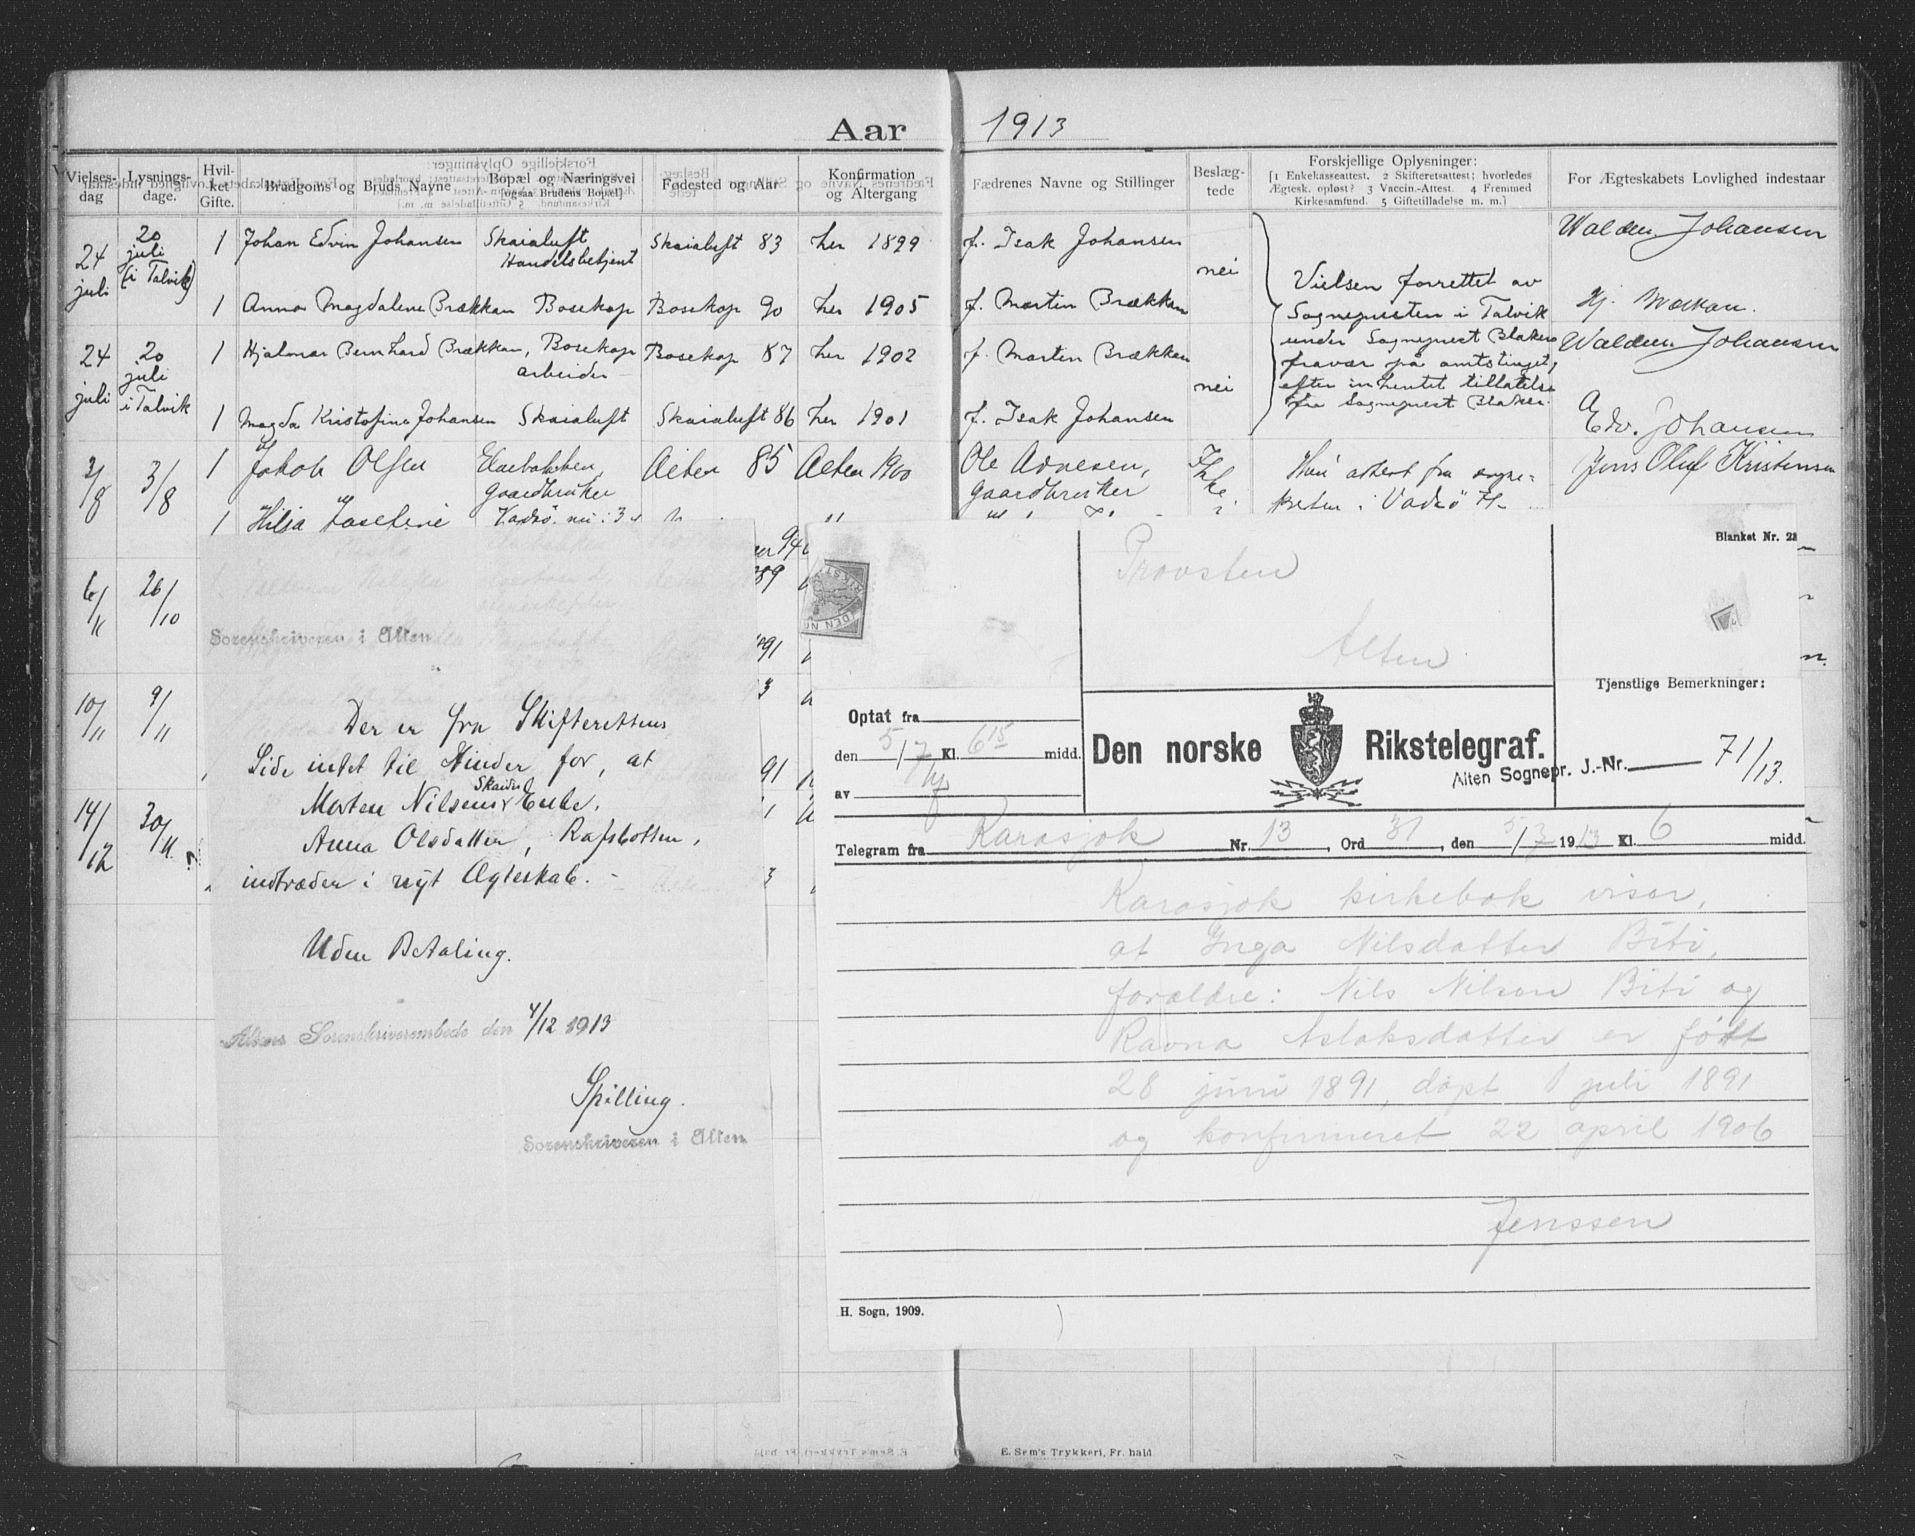 Aar 1913
Vielses-dag
Lysnings-dage.
Hvil-ket Gifte.
Brudgoms og Bruds Navne
Bopæl og Næringsvei [ogsaa Brudens Bopæl]
Fødested og Aar
Konfirmation og Altergang
Fædrenes Navne og Stillinger
Beslæg-tede
Forskjellige Oplysninger:
[1 Enkekasseattest. 2 Skifteretsattest; hvorledes
Ægtesk. opløst? 3 Vaccin.-Attest. 4 Fremmed
Kirkesamfund. 5 Giftetilladelse m. m.]
For Ægteskabets Lovlighed indestaar
24 juli 20 juli (i Talvik) 1 Johan Edvin Johansen Skaialuft Handelsbetjent Skaialuft 83 her 1899 f. Isak Johansen nei
Walden Johansen
1 Anna Magdalene Brækkan Bosekop Bosekop 90 her 1905 f. Martin Brækkan
Vielsen forrettet av
Sognepresten i Talvik
under Sogneprest Blakers
fravær på amtstinget,
efter inhentet tillatelse
fra Sogneprest Blaker.
24 juli 20 juli i Talvik 1 Hjalmar Bernhard Brækkan, Bosekop arbeider Bosekop 87 her 1902 f. Martin Brækkan nei
Walden Johansen
1 Magda Kristofine Johansen Skaialuft Skaialuft 86 her 1901 f. Isak Johansen
Edv. Johansen
3/8 3/8 1 Jakob Olsen Elvebakken, Gaardbruker Alten 85 Alten 1900 Ole Arnesen, gaardbruker Ikke
Jens Oluf Kristensen
1 Hilja Josefine Vadsø
6/11 26/10
10/11 9/11
14/12 30/11
Sorenskriveren i Alten
Der er fra Skifterettens
Side intet til Hinder for, at
Morten Nilsen Skaidi Enke,
Anna Olsdatter, Rafsbotten,
indtræder i nyt Ægteskab. -
Uden Betaling.
Altens Sorenskriverembede den 4/12 1913
Spilling.
Sorenskriveren i Alten
Blanket Nr. 22
Provsten
Alten
Tjenstlige Bemerkninger:
Optat fra
den 5/7 Kl. 6 15 midd.
av
Den norske Rikstelegraf.
Alten Sognepr. J.-Nr. 71/13.
Telegram fra Karasjok Nr. 13, Ord 31, den 5/7 1913 Kl. 6 midd.
Karasjok kirkebok viser,
at Inga Nilsdatter Biti,
forældre: Nils Nilsen Biti og
Ravna Aslaksdatter er født
28 juni 1891, døpt 1 juli 1891
og konfirmeret 22 april 1906
Jenssen
H. Sogn, 1909.
E. Sem's Trykkeri, Fr. hald.